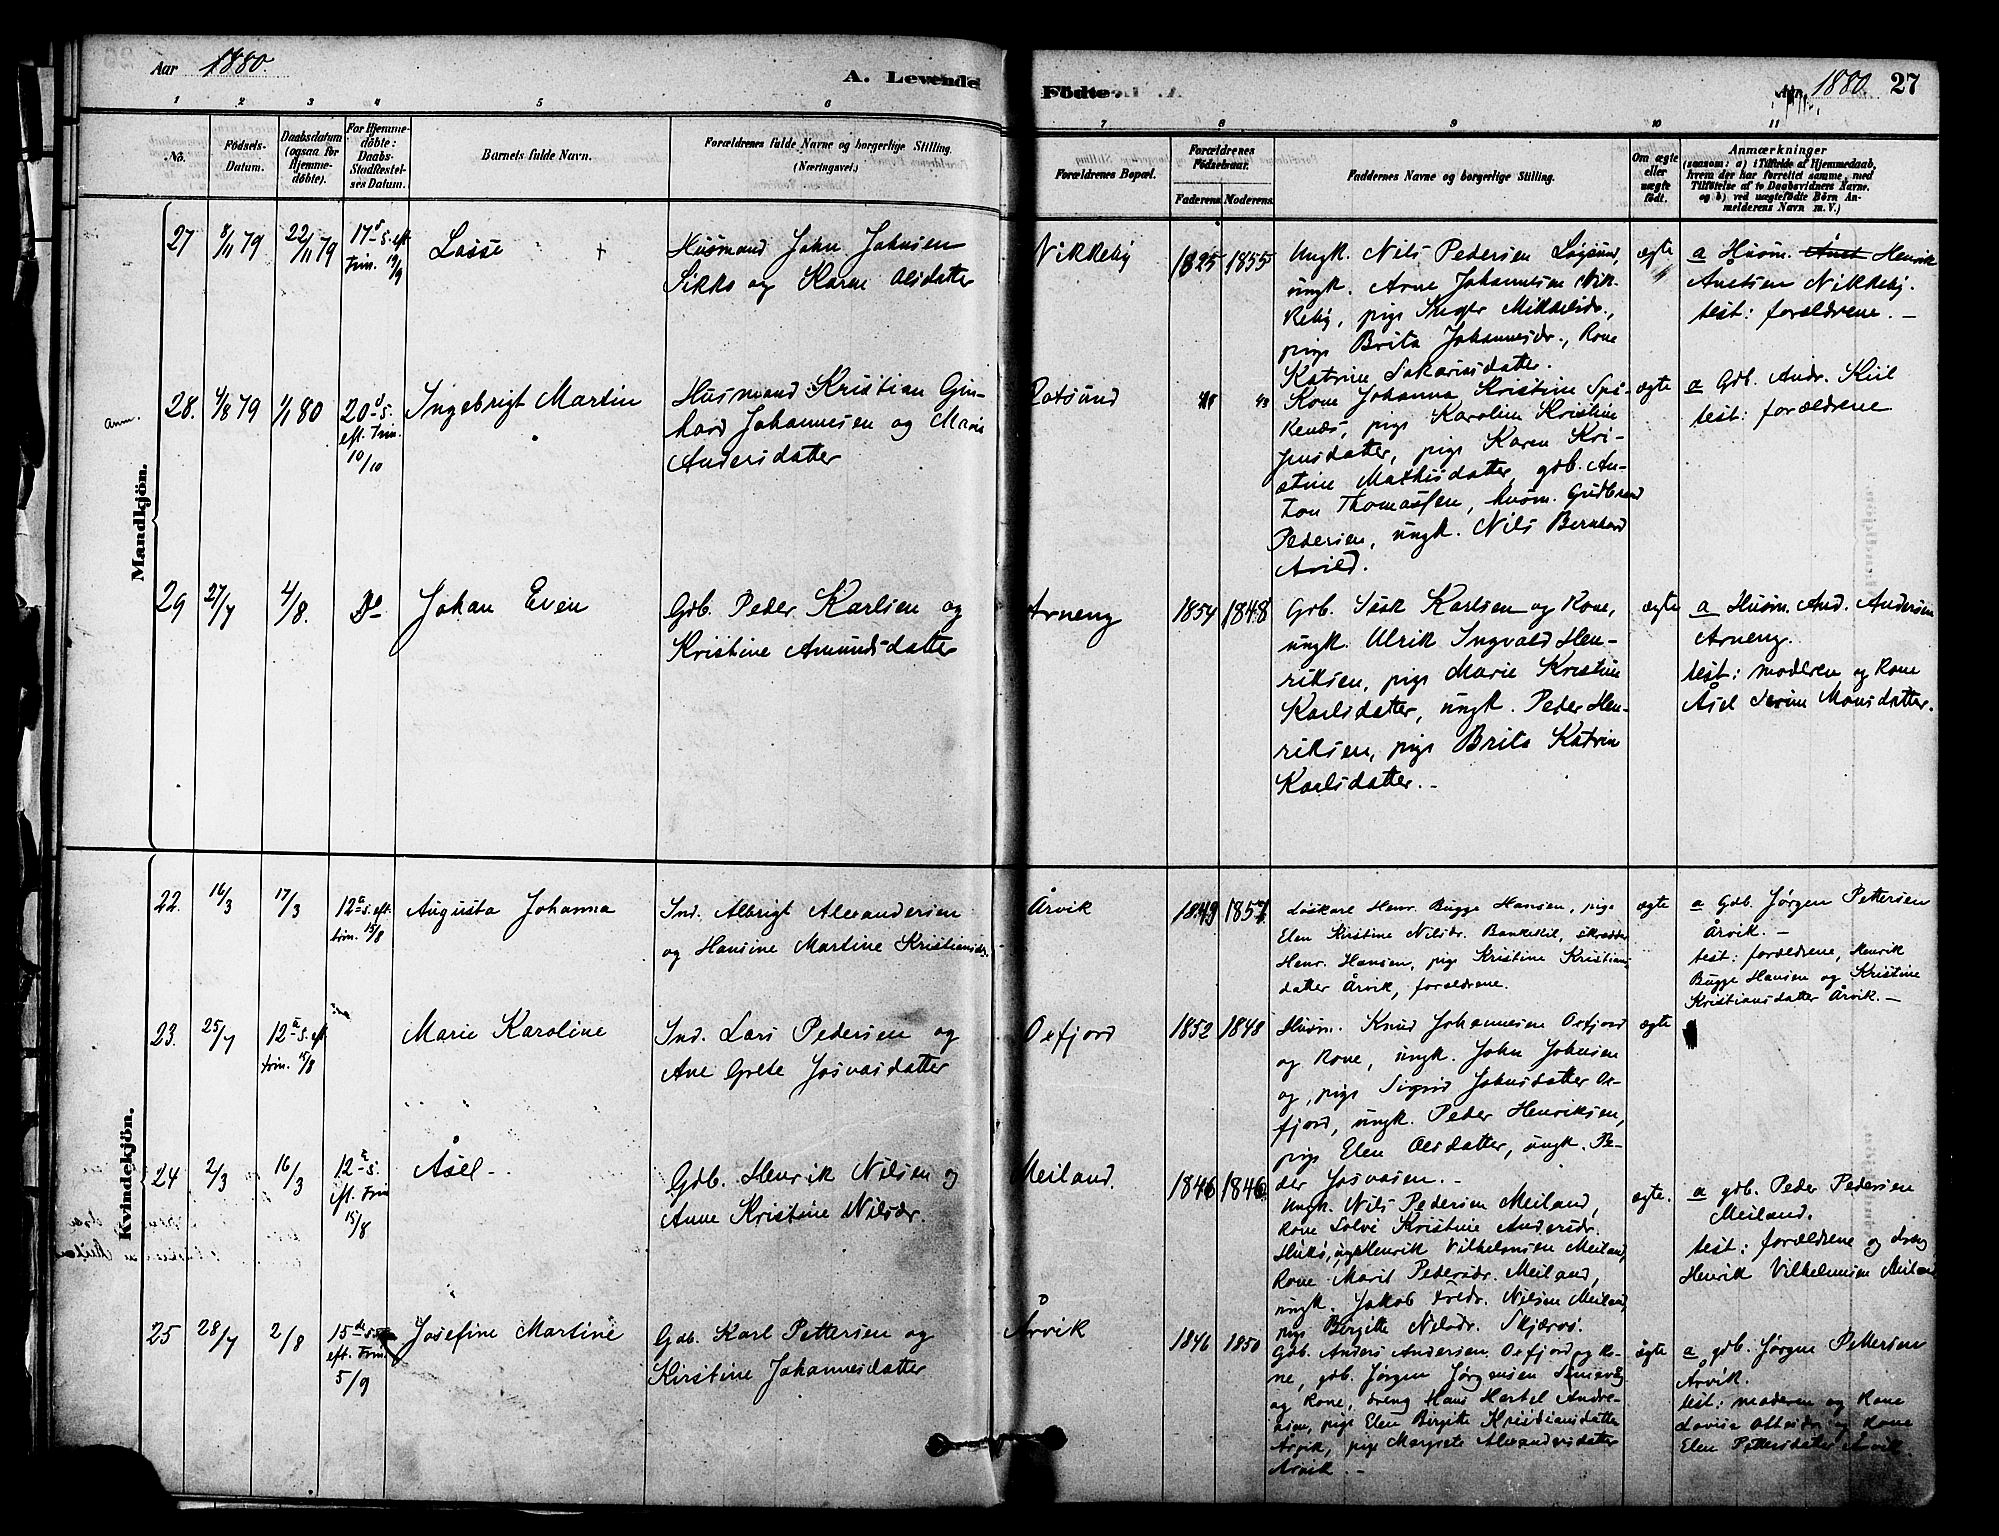 Aar 1880.
A. Levende
Födte.
Aar 1880. 27
1 2 3 4 5 6 7 8 9 10 11
No.
Födsels-Datum.
Daabsdatum (ogsaa for Hjemme-döbte).
For Hjemme-döbte: Daabs-Stadfæstel-ses Datum.
Barnets fulde Navn.
Forældrenes fulde Navne og borgerlige Stilling. (Næringsvei.)
Forældrenes Bopæl.
Forældrenes Födselsaar.
Faderens. Moderens.
Faddernes Navne og borgerlige Stilling.
Om ægte eller uægte födt.
Anmærkninger
(saasom: a) i Tilfælde af Hjemmedaab,
hvem der har forrettet samme, med
Tilföielse af to Daabsvidners Navne.
og b) ved uægtefödte Börn An-
melderens Navn m. V.)
Mandkjön.
27 8/11 79 22/11 79 17de S. eft. Trin. 19/9
Lasse
Husmand John Johnsen
Sikko og Karen Olsdatter
Nikkeby
1825 1855
Ungk. Nils Pedersen Løgsund,
ungk. Arne Johannesen Nik-
keby, pige Inger Mikkelsdr.,
pige Brita Johannesdr., Kone
Katrine Sakariasdatter.
ægte
a Husm. Henrik
Anetsen Nikkeby.
test: forældrene. -
anm.
28. 4/8 79 1/1 80 20de S. eft. Trin. 10/10
Ingebrigt Martin
Husmand Kristian Gun-
hard Johannesen og Maria
Andersdatter
Rotsund
Kone Johanna Kristine Spi-
kenæs, pige Karoline Kristine
datter, pige Karen Kri-
stine Mathisdatter, gdb. An-
ton Thomassen, husm. Gudbrand
Pedersen, ungk. Nils Bernhard
Arild.
ægte
a Gdb. Andr. Kiil
test: forældrene
29 27/7 4/8. Do
Johan Even
Gdb. Peder Karlsen og
Kristine Amundsdatter
Arneng
1854 1848
Gdb. Isak Karlsen og Kone,
ungk. Ulrik Ingvald Hen-
riksen, pige Marie Kristine
Karlsdatter, ungk. Peder Hen-
riksen, pige Brita Katrin
Karlsdatter. -
ægte
a Husm. And. Andersen
Arneng.
test: moderen og Kone
Åsel Serine Monsdatter.
Kvindekjön.
22. 16/3 17/3 12te S. eft. Trin. 15/8
Augusta Johanna
Ind. Albrigt Alexandersen
og Hansine Martine Kristiansdr.
Årvik
1849 1857
Løskarl Henr. Bugge Hansen, pige
Elen Kristine Nilsdr. Bankekiil, skrædder
Henr. Hansen, pige Kristine Kristians-
datter Årvik, forældrene.
ægte
a Gdb. Jørgen Pettersen
Årvik. -
test: forældrene, Henrik
Bugge Hansen og Kristine
Kristiansdatter Årvik. -
23. 25/7 12te S. eft. Trin. 15/8
Marie Karoline
Ind. Lars Pedersen og
Ane Grete Josvasdatter
Oxfjord
1852 1848
Husm. Knud Johannesen Oxfjord
og Kone, ungk. John Johnsen
og, pige Sigrid Johnsdatter Ox-
fjord, ungk. Peder Henriksen,
pige Elen Olsdatter, ungk. Pe-
der Josvasen. -
ægte
24 2/3 16/3 12te S. eft. Trin 15/8
Åsel -
Gdb. Henrik Nilsen og
Anne Kristine Nilsdr.
Meiland.
1846 1846
Ungk. Nils Pedersen Meiland,
Kone Solvi Kristine Andersdr.
Hukø, ungk. Henrik Vilhelmsen Meiland,
Kone Marit Pedersdr. Meiland,
ungk. Jakob Fredr. Nilsen Meiland,
pige Birgitte Nilsdr. Skjærvø.
ægte.
a gdb. Peder Pedersen
Meiland.
test: forældrene og dreng
Henrik Vilhelmsen Meiland
25 28/7 2/8 15de S. eft. Trin. 5/9
Josefine Martine
Gdb. Karl Pettersen og
Kirstine Johannesdatter
Årvik
1846 1850
Gdb. Anders Andersen Oxfjord og Ko-
ne, gdb. Jørgen Jørgensen
og Kone, dreng Hans Hartel Andre-
asen, pige Elen Birgitte Kristiansdatter
Årvik, pige Margrete Alexandersdatter
Årvik. -
ægte
a gdb. Jørgen Pettersen
Årvik.
test: moderen og Kone
Lovisa Ottosdr. og Kone
Elen Pettersdatter Årvik.